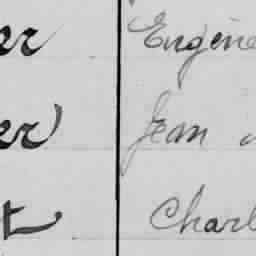 er Eugène
er Jean
t Charl